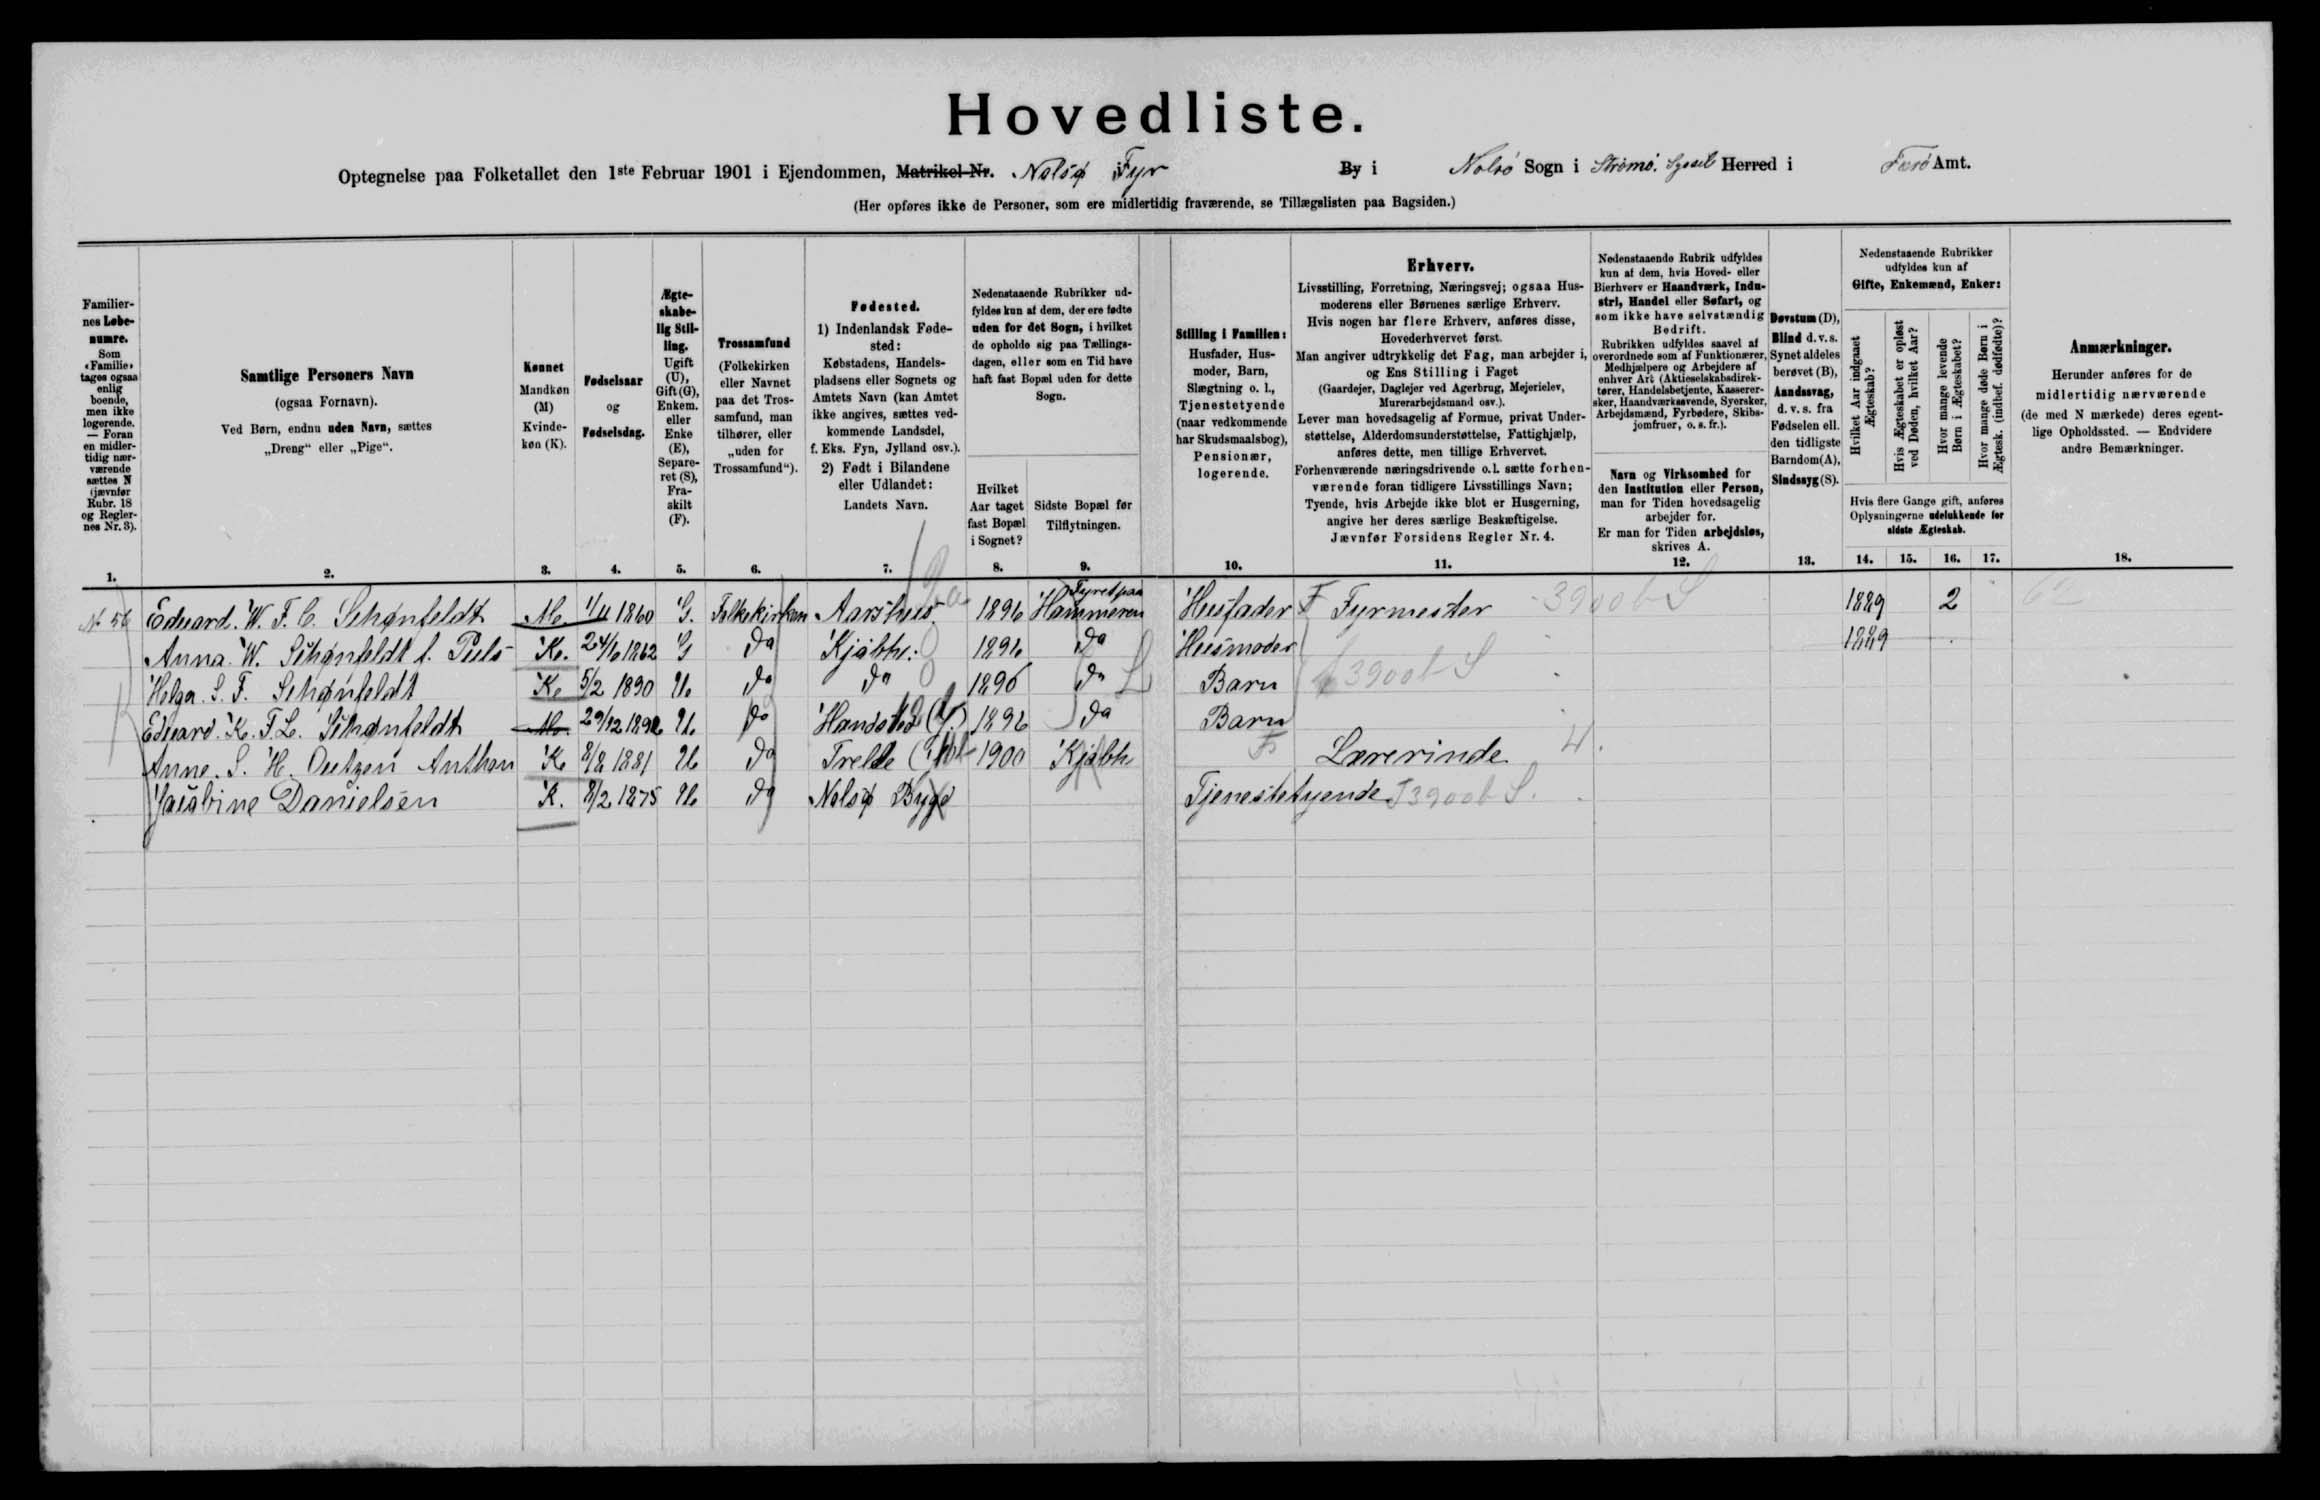 Hovedliste.
Optegnelse paa Folketallet den 1ste Februar 1901 i Ejendommen, Matrikel-Nr. Nolsø Fyr By i Nolsö Sogn i Strömö. Syssel Herred i Færö Amt.
(Her opføres ikke de Personer, som ere midlertidig fraværende, se Tillægslisten paa Bagsiden.)
Familier-
nes Løbe-
numre.
Som
«Familie»
tages ogsaa
enlig
boende,
men ikke
logerende.
— Foran
en midler-
tidig nær-
værende
sættes N
(jævnfør
Rubr. 18
og Regler-
nes Nr. 3).
Samtlige Personers Navn
(ogsaa Fornavn).
Ved Børn, endnu uden Navn, sættes
„Dreng“ eller „Pige“.
Kønnet
Mandkøn
(M)
Kvinde-
køn (K).
Fødselsaar
og
Fødselsdag.
Ægte-
skabe-
lig Stil-
ling.
Ugift
(U),
Gift (G),
Enkem.
eller
Enke
(E),
Separe-
ret (S),
Fra-
skilt
(F).
Trossamfund
(Folkekirken
eller Navnet
paa det Tros-
samfund, man
tilhører, eller
„uden for
Trossamfund“).
Fødested.
1) Indenlandsk Føde-
sted:
Købstadens, Handels-
pladsens eller Sognets og
Amtets Navn (kan Amtet
ikke angives, sættes ved-
kommende Landsdel,
f. Eks. Fyn, Jylland osv.).
2) Født i Bilandene
eller Udlandet:
Landets Navn.
Nedenstaaende Rubrikker ud-
fyldes kun af dem, der ere fødte
uden for det Sogn, i hvilket
de opholde sig paa Tællings-
dagen, eller som en Tid have
haft fast Bopæl uden for dette
Sogn.
Hvilket
Aar taget
fast Bopæl
i Sognet?
Sidste Bopæl før
Tilflytningen.
Stilling i Familien:
Husfader, Hus-
moder, Barn,
Slægtning o. l.,
Tjenestetyende
(naar vedkommende
har Skudsmaalsbog),
Pensionær,
logerende.
Erhverv.
Livsstilling, Forretning, Næringsvej; ogsaa Hus-
moderens eller Børnenes særlige Erhverv.
Hvis nogen har flere Erhverv, anføres disse,
Hovederhvervet først.
Man angiver udtrykkelig det Fag, man arbejder i,
og Ens Stilling i Faget
(Gaardejer, Daglejer ved Agerbrug, Mejerielev,
Murerarbejdsmand osv.).
Lever man hovedsagelig af Formue, privat Under-
støttelse, Alderdomsunderstøttelse, Fattighjælp,
anføres dette, men tillige Erhvervet.
Forhenværende næringsdrivende o. l. sætte forhen-
værende foran tidligere Livsstillings Navn;
Tyende, hvis Arbejde ikke blot er Husgerning,
angive her deres særlige Beskæftigelse.
Jævnfør Forsidens Regler Nr. 4.
Nedenstaaende Rubrik udfyldes
kun af dem, hvis Hoved- eller
Bierhverv er Haandværk, Indu-
stri, Handel eller Søfart, og
som ikke have selvstændig
Bedrift.
Rubrikken udfyldes saavel af
overordnede som af Funktionærer,
Medhjælpere og Arbejdere af
enhver Art (Aktieselskabsdirek-
tører, Handelsbetjente, Kasserer-
sker, Haandværkssvende, Syersker,
Arbejdsmænd, Fyrbødere, Skibs-
jomfruer, o. s. fr.).
Navn og Virksomhed for
den Institution eller Person,
man for Tiden hovedsagelig
arbejder for.
Er man for Tiden arbejdsløs,
skrives A.
Døvstum (D),
Blind d. v. s.
Synet aldeles
berøvet (B),
Aandssvag,
d. v. s. fra
Fødselen ell.
den tidligste
Barndom (A),
Sindssyg (S).
Nedenstaaende Rubrikker
udfyldes kun af
Gifte, Enkemænd, Enker:
Hvilket Aar indgaaet
Ægteskab?
Hvis Ægteskabet er opløst
ved Døden, hvilket Aar?
Hvor mange levende
Børn i Ægteskabet?
Hvor mange døde Børn i
Ægtesk. (indbef. dødfødte)?
Hvis flere Gange gift, anføres
Oplysningerne udelukkende for
sidste Ægteskab.
Anmærkninger.
Herunder anføres for de
midlertidig nærværende
(de med N mærkede) deres egent-
lige Opholdssted. — Endvidere
andre Bemærkninger.
1. 2. 3. 4. 5. 6. 7. 8. 9. 10. 11. 12. 13. 14. 15. 16. 17. 18.
No 56 Eduard. W. F. C. Schønfeldt M. 1860 G. Folkekirken Aarshus 1896 Fyret paa Hammeren Husfader F Fyrmester 3900 b S 1889 2 62
Anna W. Schønfeldt f. Puls K. 24/6 1862 G do Kjøbh. 1896 do Husmoder 1889
Helga. S. F. Schønfeldt K. 5/2 1890 U. do do 1896 do Barn 3900 b S
Eduard. K. F. L. Schønfeldt M. 29/12 U. do 1896 do Barn
Anne. S. H. Anthon K. 1881 U. do Trelde 1900 Kjøbh F Lærerinde 4.
Jacobine Danielsen K. 8/2 1875 U. do Nolsø Bygd Tjenestetyende F 3900 b S.